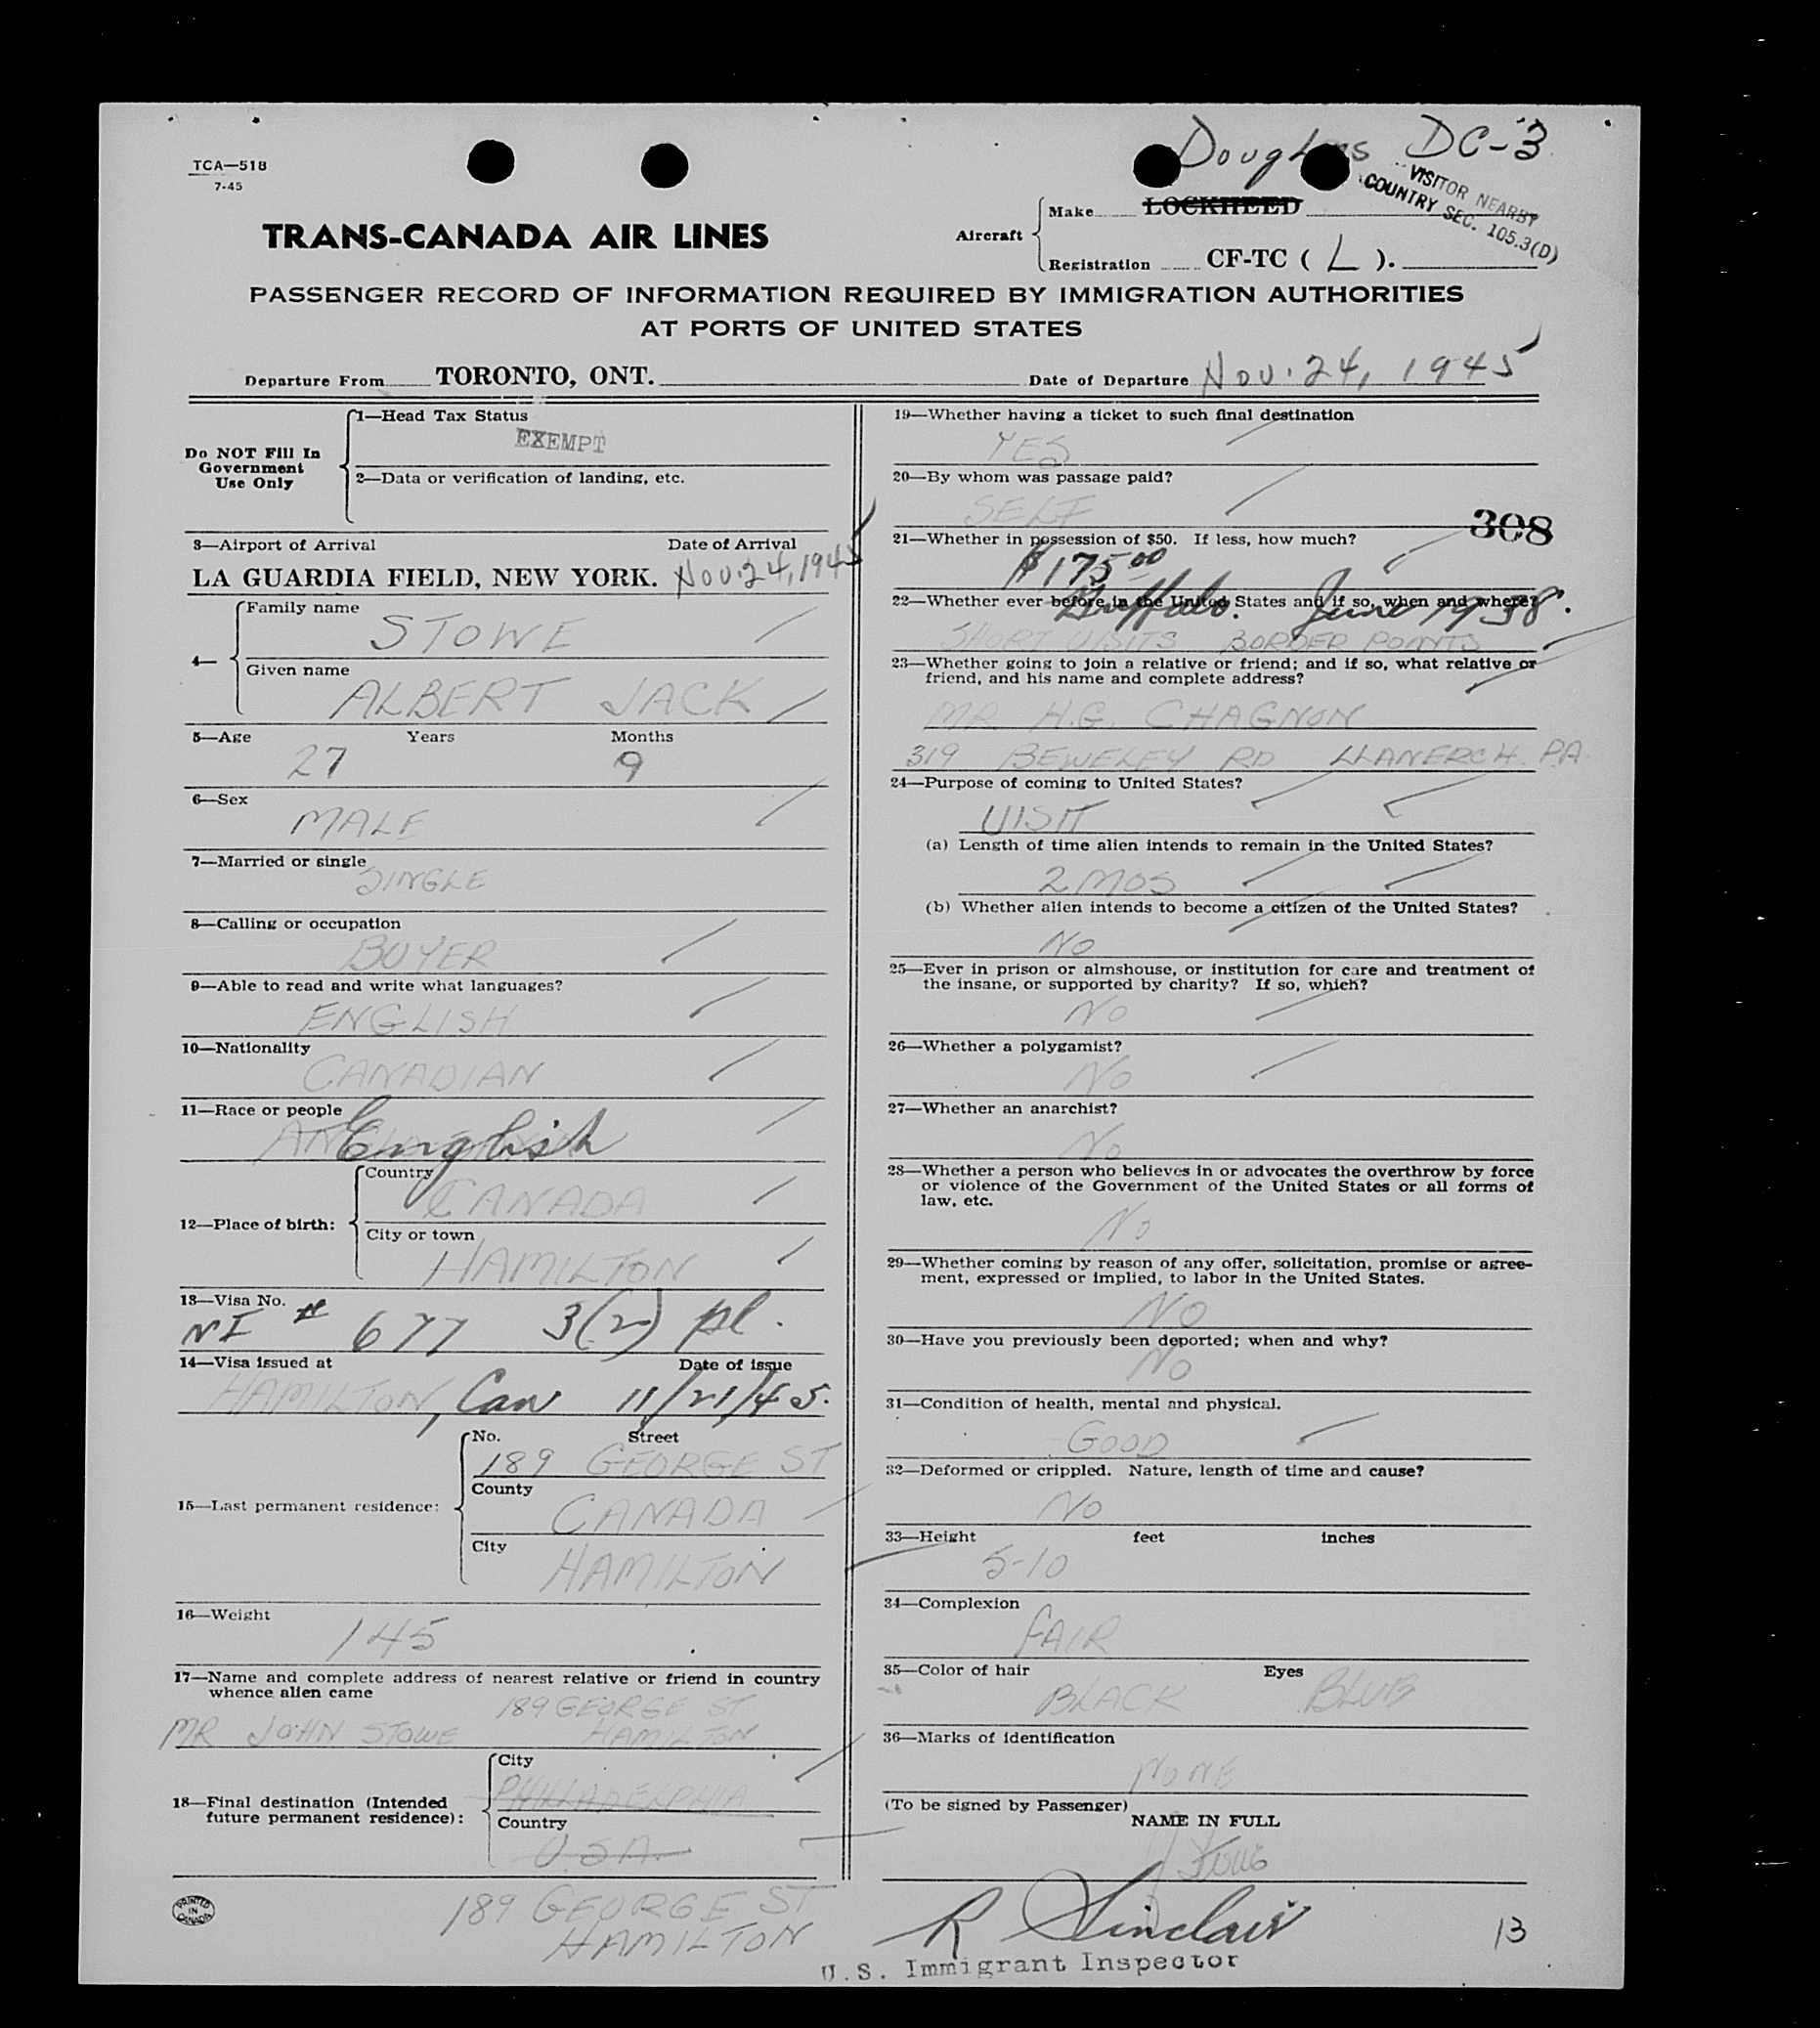 TCA—518
7-45
Douglas DC-3
VISITOR NEARBY
COUNTRY SEC. 105.3(D)
TRANS-CANADA AIR LINES
Aircraft
Make LOCKHEED
Registration CF-TC ( L ).
PASSENGER RECORD OF INFORMATION REQUIRED BY IMMIGRATION AUTHORITIES
AT PORTS OF UNITED STATES
Departure From TORONTO, ONT. Date of Departure Nov. 24, 1945
Do NOT Fill In
Government
Use Only
1—Head Tax Status
EXEMPT
2—Data or verification of landing, etc.
3—Airport of Arrival Date of Arrival
LA GUARDIA FIELD, NEW YORK. Nov. 24, 1945
4—
Family name
STOWE
Given name
ALBERT JACK
5—Age Years Months
27 9
6—Sex
MALE
7—Married or single
SINGLE
8—Calling or occupation
BUYER
9—Able to read and write what languages?
ENGLISH
10—Nationality
CANADIAN
11—Race or people
English
12—Place of birth:
Country
CANADA
City or town
HAMILTON
13—Visa No.
NI # 677 3(2) pl.
14—Visa issued at Date of issue
HAMILTON, Can 11/21/45.
15—Last permanent residence:
No. Street
189 GEORGE ST
County
CANADA
City
HAMILTON
16—Weight
145
17—Name and complete address of nearest relative or friend in country
whence alien came
189 GEORGE ST
MR JOHN STOWE HAMILTON
18—Final destination (Intended
future permanent residence):
City
PHILADELPHIA
Country
U.S.A.
189 GEORGE ST
HAMILTON
PRINTED
IN
CANADA
19—Whether having a ticket to such final destination
YES
20—By whom was passage paid?
SELF
308
21—Whether in possession of $50. If less, how much?
$175.00
22—Whether ever before in the United States and if so, when and where?
Buffalo. June 1938.
SHORT VISITS BORDER POINTS
23—Whether going to join a relative or friend; and if so, what relative or
friend, and his name and complete address?
MR H.G. CHAGNON
319 BEWELEY RD LLANERCH PA.
24—Purpose of coming to United States?
VISIT
(a) Length of time alien intends to remain in the United States?
2 MOS
(b) Whether alien intends to become a citizen of the United States?
NO
25—Ever in prison or almshouse, or institution for care and treatment of
the insane, or supported by charity? If so, which?
NO
26—Whether a polygamist?
NO
27—Whether an anarchist?
NO
28—Whether a person who believes in or advocates the overthrow by force
or violence of the Government of the United States or all forms of
law, etc.
NO
29—Whether coming by reason of any offer, solicitation, promise or agree-
ment, expressed or implied, to labor in the United States.
NO
30—Have you previously been deported; when and why?
NO
31—Condition of health, mental and physical.
GOOD
32—Deformed or crippled. Nature, length of time and cause?
NO
33—Height feet inches
5-10
34—Complexion
FAIR
35—Color of hair Eyes
BLACK BLUE
36—Marks of identification
NONE
(To be signed by Passenger)
NAME IN FULL
R Sinclair
U.S. Immigrant Inspector
13